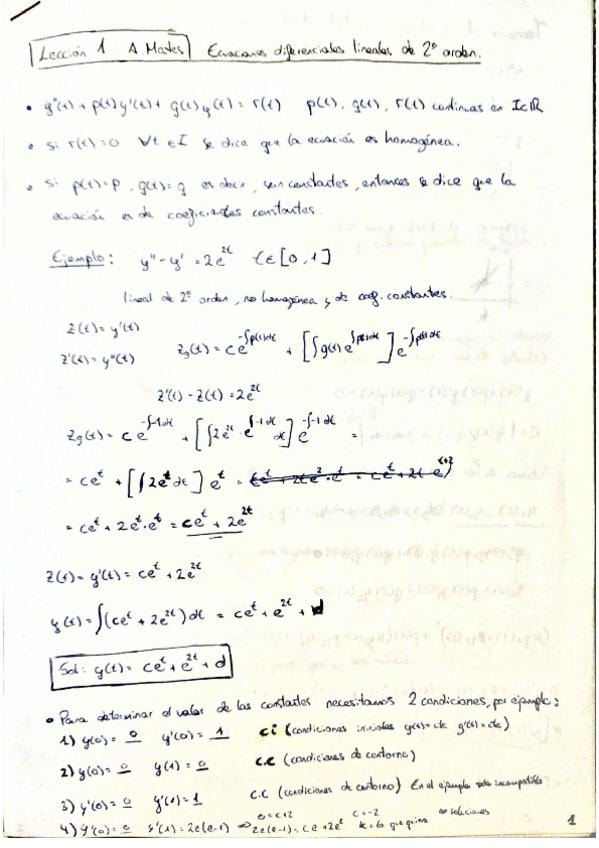 Lección 1 A. Mates Ecuaciones diferenciales lineales de 2º orden.
• y''(t) + p(t)y'(t) + q(t)y(t) = r(t) p(t), q(t), r(t) continuas en I⊂ℝ
• si r(t)=0 ∀t∈I se dice que la ecuación es homogénea.
• si p(t)=p, q(t)=q es decir, son constantes, entonces se dice que la
ecuación es de coeficientes constantes.
Ejemplo: y'' - y' = 2e^{2t} t∈[0,1]
lineal de 2º orden, no homogénea y de coef. constantes.
z(t) = y'(t)
z'(t) = y''(t) z_g(t) = ce^{-∫p(t)dt} + [∫q(t)e^{∫p(t)dt}] e^{-∫p(t)dt}
z'(t) - z(t) = 2e^{2t}
z_g(t) = ce^{-∫-1dt} + [∫2e^{2t} e^{∫-1dt} dt] e^{-∫-1dt} =
= ce^t + [∫2e^t dt] e^t =
= ce^t + 2e^t·e^t = ce^t + 2e^{2t}
z(t) = y'(t) = ce^t + 2e^{2t}
y(t) = ∫(ce^t + 2e^{2t})dt = ce^t + e^{2t} + d
Sol: y(t) = ce^t + e^{2t} + d
• Para determinar el valor de las constantes necesitamos 2 condiciones, por ejemplo:
1) y(0) = 0 y'(0) = 1 ci (condiciones iniciales y(t)=cte y'(t)=cte)
2) y(0) = 0 y(1) = 0 c.c (condiciones de contorno)
3) y'(0) = 0 y'(1) = 1 c.c (condiciones de contorno) En el ejemplo incompatible
4) y'(0) = 0 y'(1) = 2e(e-1) ⇒ 0 = c+2 2e(e-1) = ce + 2e² c = -2 ∞ soluciones
1